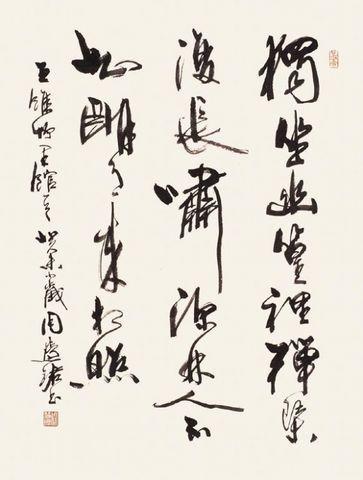 獨坐幽篁裡彈琴
復長嘯深林人不
知明月來相照
王維竹里館 歲周慧珺書